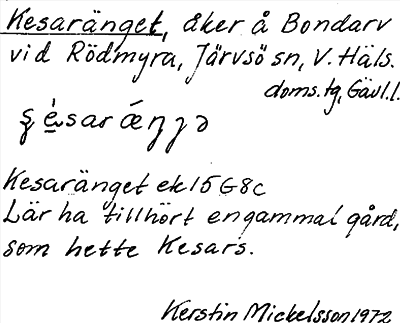 Kesaränget, åker å Bondarv
vid Rödmyra, Järvsö sn, V. Häls.
doms. tg, Gävl. l.
Kesaränget ek 15 G8c
Lär ha tillhört en gammal gård,
som hette Kesars.
Kerstin Mickelsson 1972